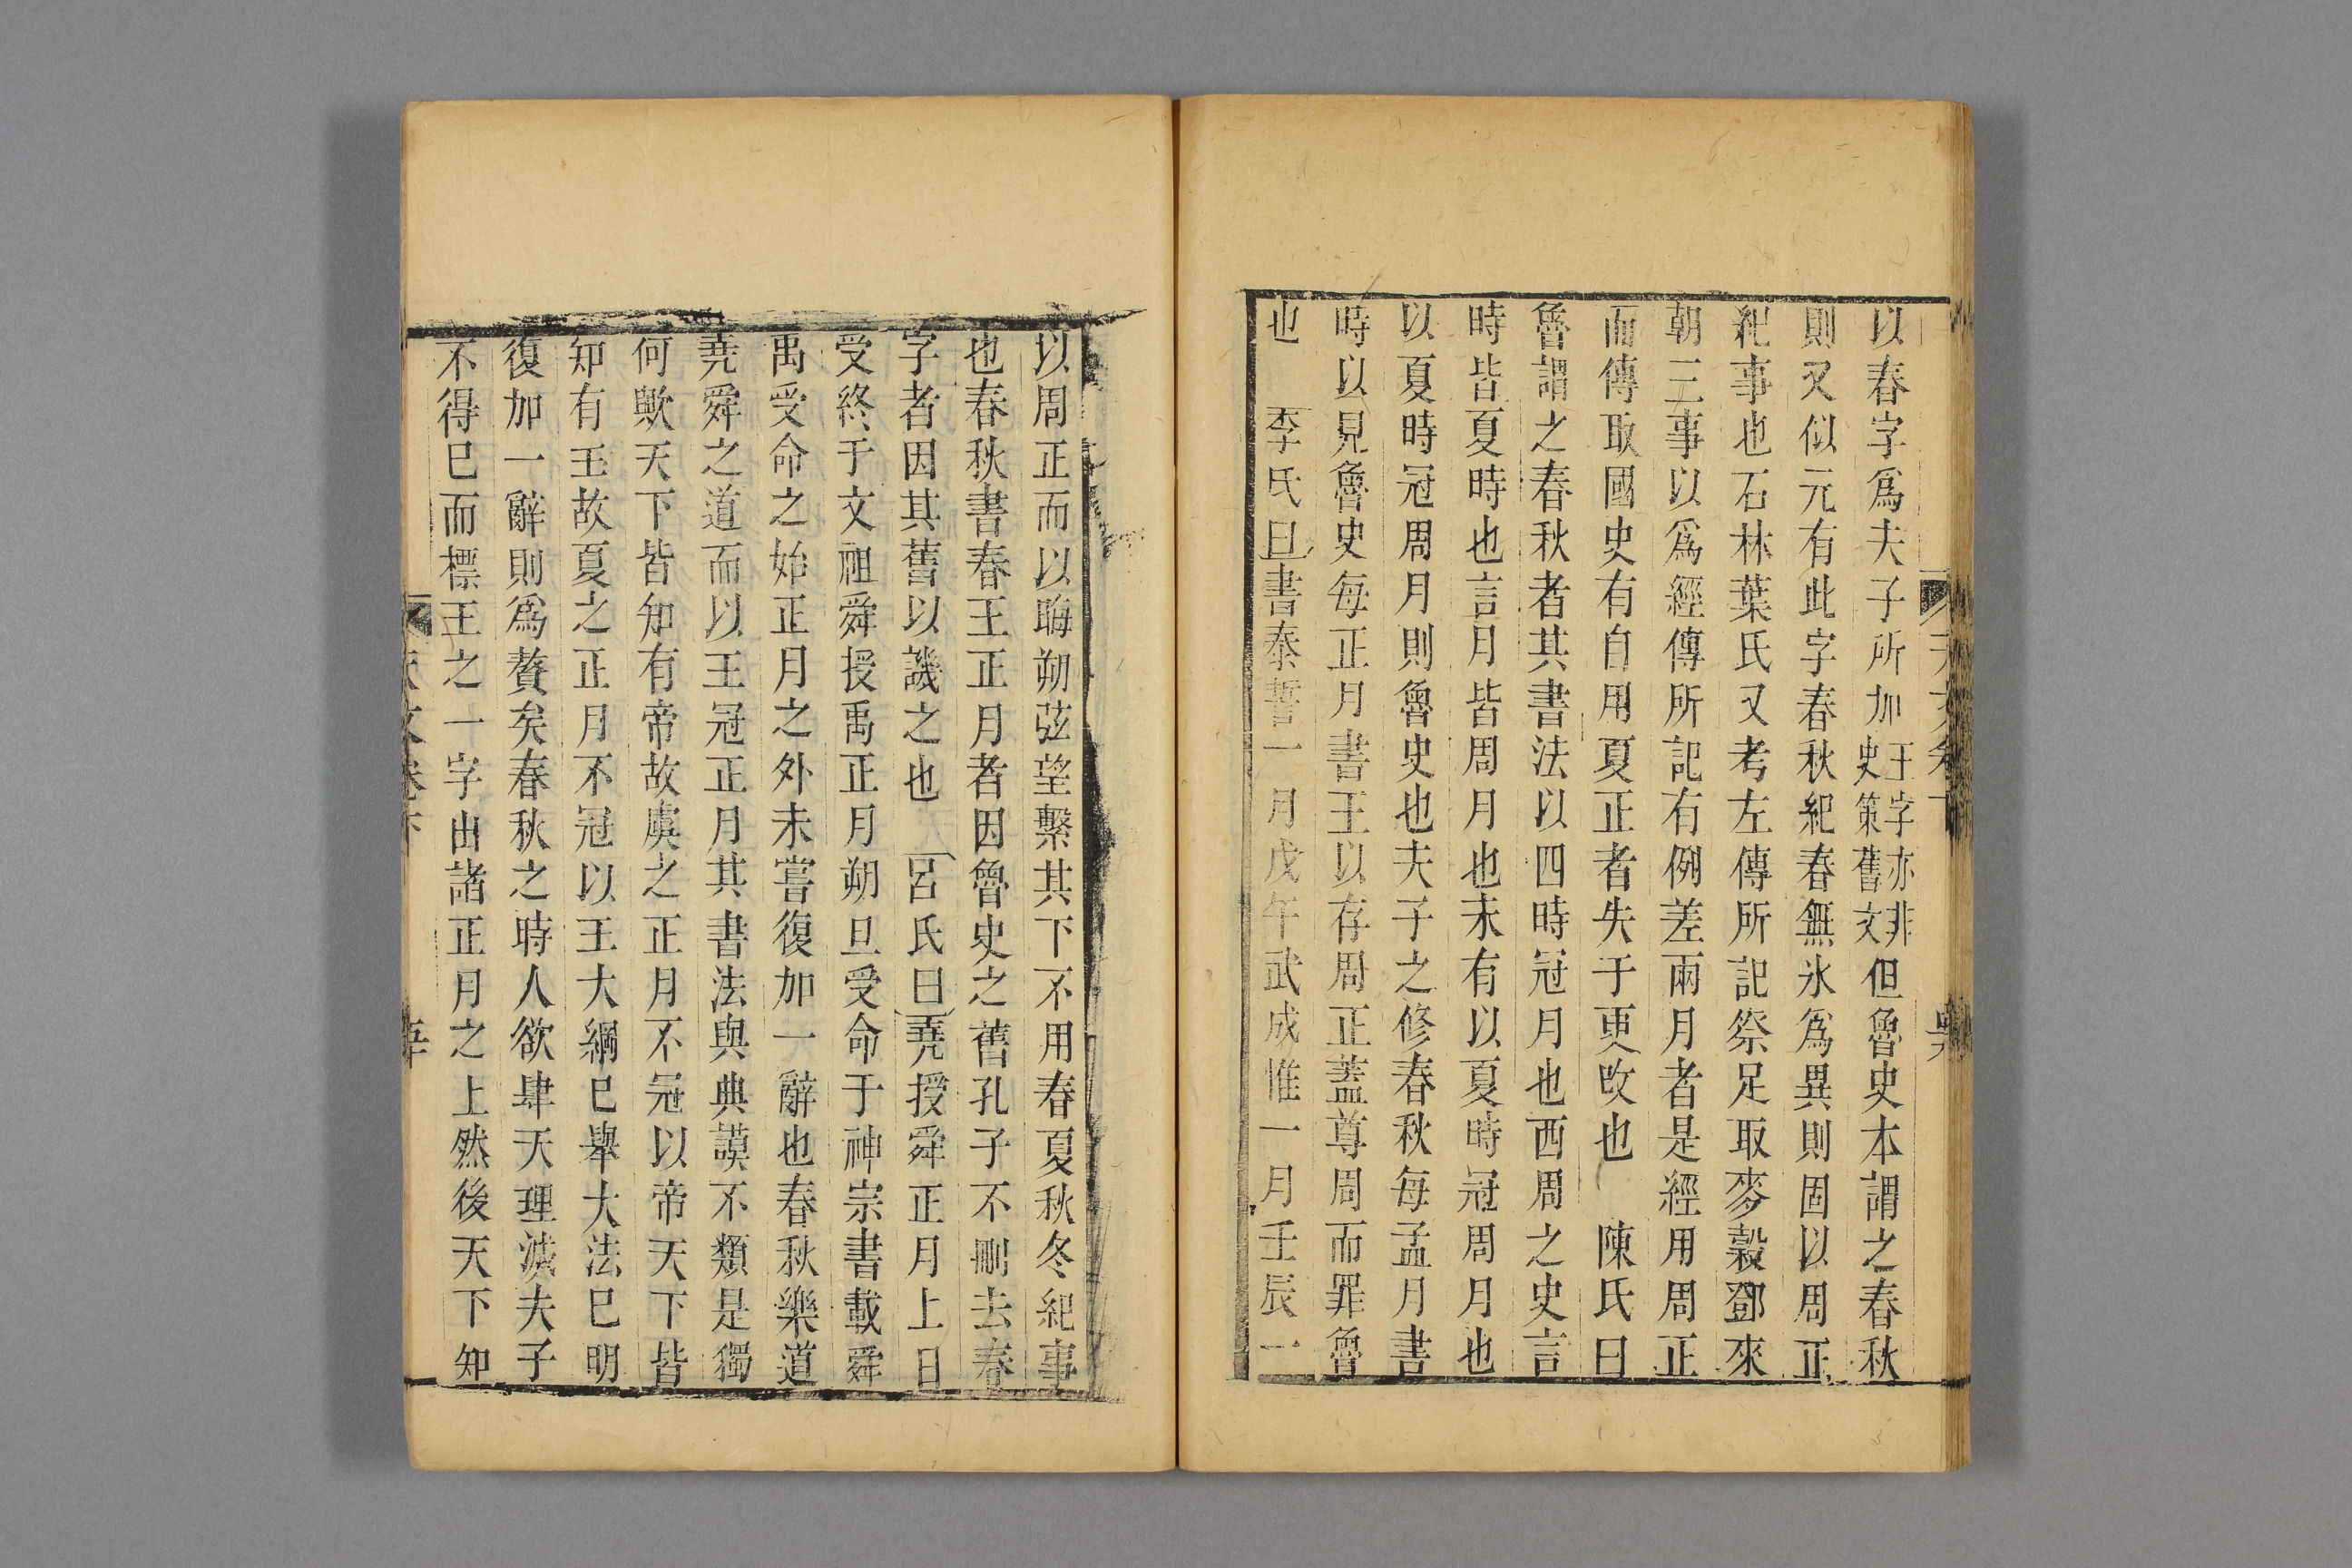 以春字爲夫子所加王字亦非史策舊文但魯史本謂之春秋
則又似元有此字春秋紀春無氷爲異則固以周正
紀事也石林葉氏又考左傳所記祭足取麥穀鄧來
朝三事以爲經傳所記有例差兩月者是經用周正
而傳取國史有自用夏正者失于更改也　陳氏曰
魯謂之春秋者其書法以四時冠月也西周之史言
時皆夏時也言月皆周月也未有以夏時冠周月也
以夏時冠周月則魯史也夫子之修春秋每孟月書
時以見魯史每正月書王以存周正蓋尊周而罪魯
也　李氏曰書泰誓一月戊午武成惟一月壬辰一
以周正而以晦朔弦望繫其下不用春夏秋冬紀事
也春秋書春王正月者因魯史之舊孔子不刪去春
字者因其舊以譏之也　呂氏曰堯授舜正月上日
受終于文祖舜授禹正月朔旦受命于神宗書載舜
禹受命之始正月之外未嘗復加一辭也春秋樂道
堯舜之道而以王冠正月其書法與典謨不類是獨
何歟天下皆知有帝故虞之正月不冠以帝天下皆
知有王故夏之正月不冠以王大綱已舉大法已明
復加一辭則爲贅矣春秋之時人欲肆天理滅夫子
不得已而標王之一字出諸正月之上然後天下知